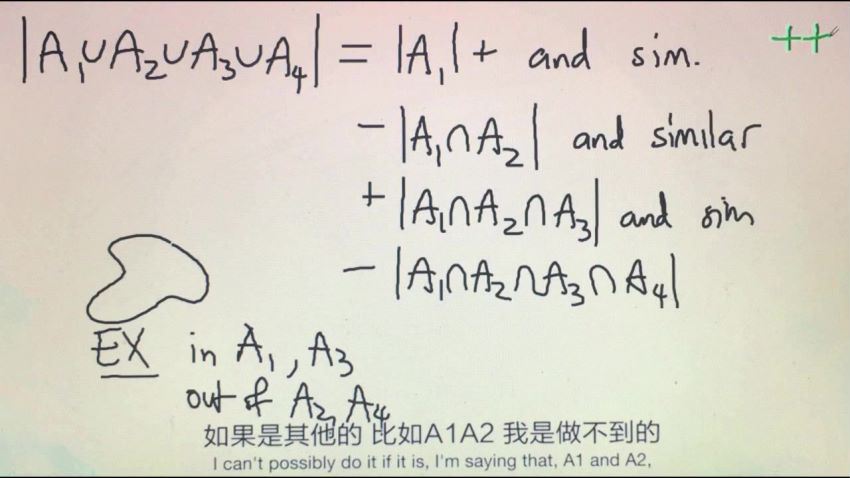 |A₁∪A₂∪A₃∪A₄| = |A₁| + and sim. ++
- |A₁∩A₂| and similar
+ |A₁∩A₂∩A₃| and sim
- |A₁∩A₂∩A₃∩A₄|
EX in A₁, A₃
out of A₂, A₄
如果是其他的 比如A1A2 我是做不到的
I can't possibly do it if it is, I'm saying that, A1 and A2,